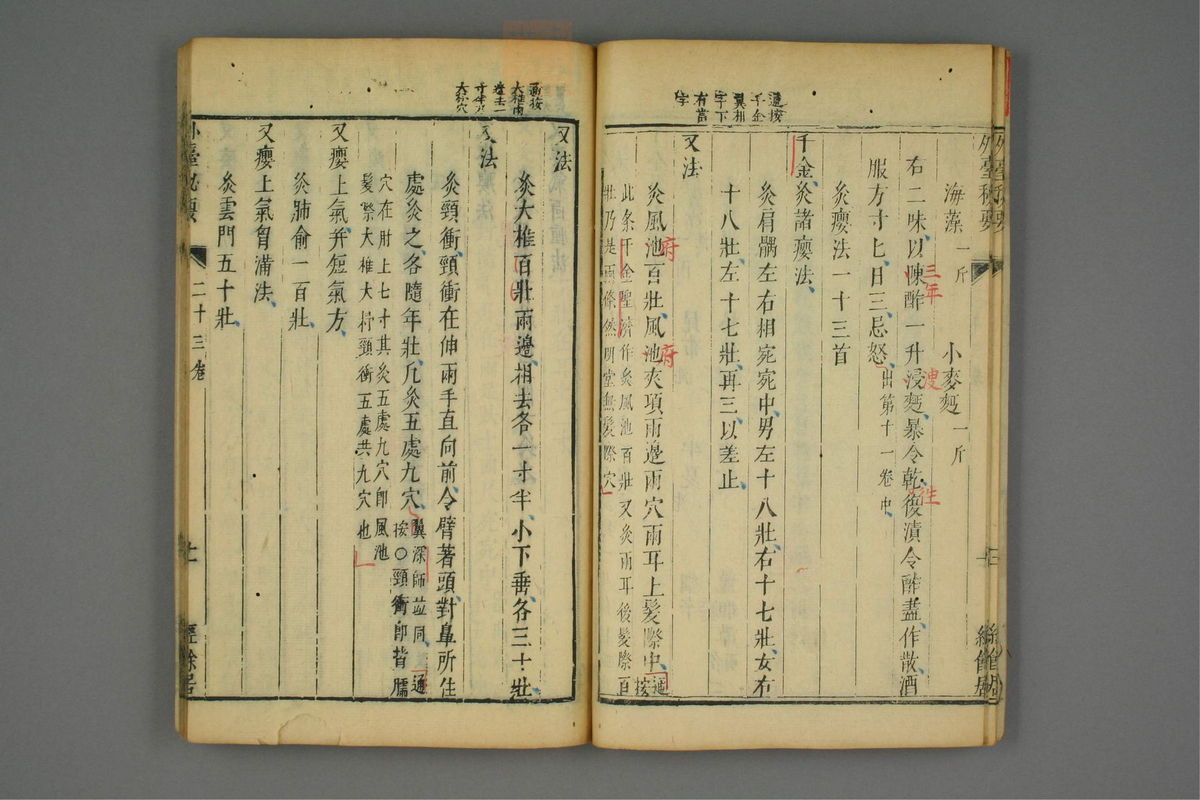 外臺秘要
海藻一斤 小麥麪一斤
右二味以陳酢一升浸麪暴令乾復漬令酢盡作散酒
三年
溲
生
服方寸匕日三忌怒出第十一卷中
灸癭法一十三首
千金灸諸癭法
灸肩髃左右相宛宛中男左十八壯右十七壯女右
十八壯左十七壯再三以差止
又法
灸風池百壯風池夾項兩邊兩穴兩耳上髮際中
府
府
通按
此条千金聖濟作灸風池百壯又灸兩耳後髮際百
壯乃是兩條然明堂無髮際穴
通按
千金
翼相
字下
有當
字
又法
灸大椎百壯兩邊相去各一寸半小下垂各三十壯
又法
灸頸衝頸衝在伸兩手直向前令臂著頭對鼻所住
處灸之各隨年壯凡灸五處九穴
翼深師並同通
按○頸衝即背臑
穴在肘上七寸其灸五處九穴即風池
髮際大椎大杼頸衝五處共九穴也
又癭上氣并短氣方
灸肺俞一百壯
又癭上氣胷滿法
灸雲門五十壯
外臺秘要
二十三卷
經餘居
通按
大椎兩
邊去一
大杼穴